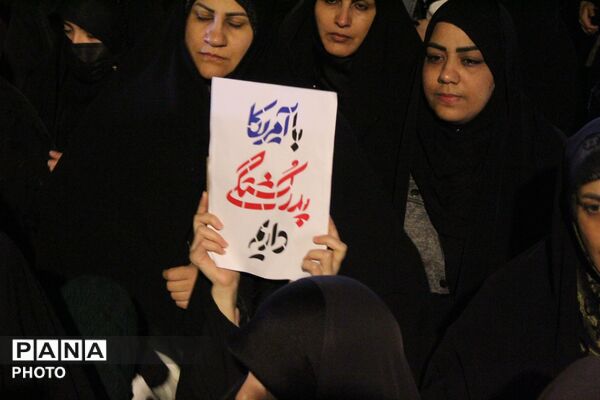 با آمریکا
پدرکُشتگی
داریم
PANA
PHOTO